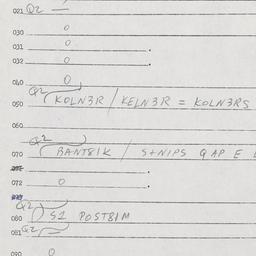 021 Q2 —
030 0
031 0
032 0
040 0
Q2
050 KOLN3R / KELN3R = KOLN3RS
060
Q2
070 BANT8IK / S+NIPS Q AP E
072 0
Q2
080 S1 POST8IM
081 Q2
090 0